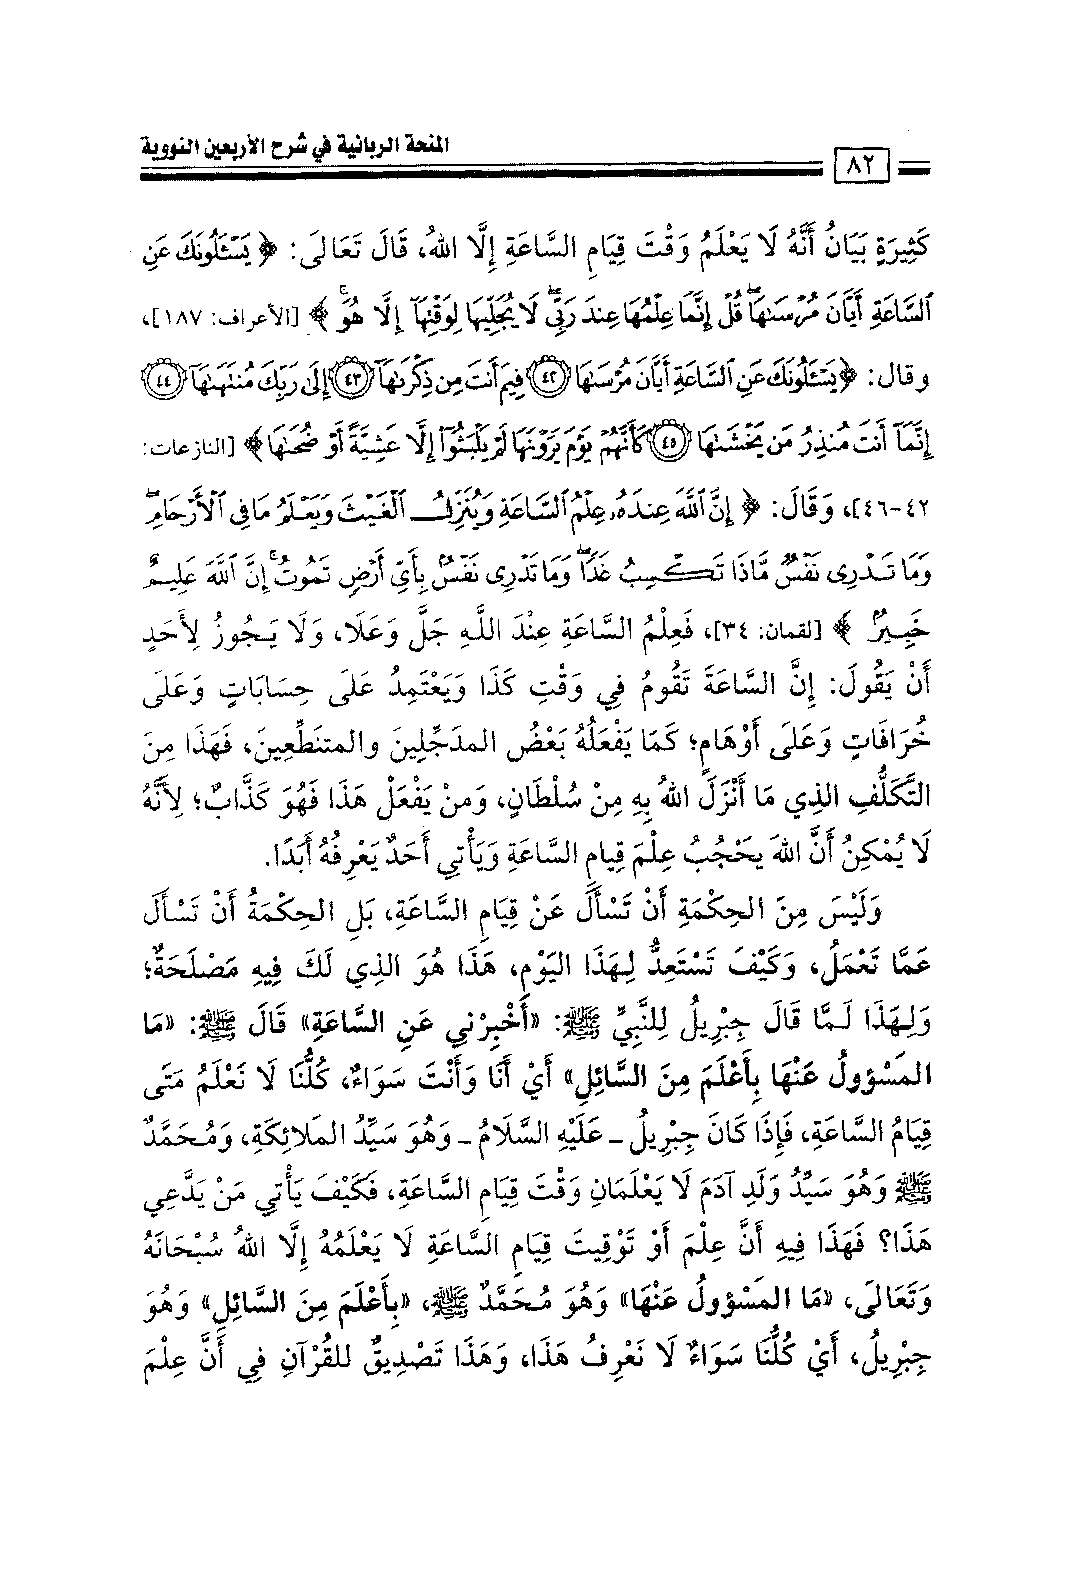 المنحة الربانية في شرح الأربعين النووية
٨٢
كَثِيرَةٍ بَيَانُ أَنَّهُ لَا يَعْلَمُ وَقْتَ قِيَامِ السَّاعَةِ إِلَّا اللهُ، قَالَ تَعَالَى: ﴿يَسْـَٔلُونَكَ عَنِ
ٱلسَّاعَةِ أَيَّانَ مُرْسَىٰهَاۖ قُلْ إِنَّمَا عِلْمُهَا عِندَ رَبِّىۖ لَا يُجَلِّيهَا لِوَقْتِهَآ إِلَّا هُوَۚ﴾ [الأعراف: ١٨٧]،
وقال: ﴿يَسْـَٔلُونَكَ عَنِ ٱلسَّاعَةِ أَيَّانَ مُرْسَىٰهَا ٤٢ فِيمَ أَنتَ مِن ذِكْرَىٰهَآ ٤٣ إِلَىٰ رَبِّكَ مُنتَهَىٰهَآ ٤٤
إِنَّمَآ أَنتَ مُنذِرُ مَن يَخْشَىٰهَا ٤٥ كَأَنَّهُمْ يَوْمَ يَرَوْنَهَا لَمْ يَلْبَثُوٓا۟ إِلَّا عَشِيَّةً أَوْ ضُحَىٰهَا﴾ [النازعات:
٤٢-٤٦]، وَقَالَ: ﴿إِنَّ ٱللَّهَ عِندَهُۥ عِلْمُ ٱلسَّاعَةِ وَيُنَزِّلُ ٱلْغَيْثَ وَيَعْلَمُ مَا فِى ٱلْأَرْحَامِۖ
وَمَا تَدْرِى نَفْسٌ مَّاذَا تَكْسِبُ غَدًاۖ وَمَا تَدْرِى نَفْسٌۢ بِأَىِّ أَرْضٍ تَمُوتُۚ إِنَّ ٱللَّهَ عَلِيمٌ
خَبِيرٌۢ﴾ [لقمان: ٣٤]، فَعِلْمُ السَّاعَةِ عِنْدَ اللَّهِ جَلَّ وَعَلَا، وَلَا يَجُوزُ لِأَحَدٍ
أَنْ يَقُولَ: إِنَّ السَّاعَةَ تَقُومُ فِي وَقْتِ كَذَا وَيَعْتَمِدُ عَلَى حِسَابَاتٍ وَعَلَى
خُرَافَاتٍ وَعَلَى أَوْهَامٍ؛ كَمَا يَفْعَلُهُ بَعْضُ المدَجِّلِينَ والمتنَطِّعِينَ، فَهَذَا مِنَ
التَّكَلُّفِ الذِي مَا أَنْزَلَ اللهُ بِهِ مِنْ سُلْطَانٍ، وَمنْ يَفْعَلْ هَذَا فَهُوَ كَذَّابٌ؛ لِأَنَّهُ
لَا يُمْكِنُ أَنَّ اللهَ يَحْجُبُ عِلْمَ قِيَامِ السَّاعَةِ وَيَأْتِي أَحَدٌ يَعْرِفُهُ أَبَدًا.
وَلَيْسَ مِنَ الحِكْمَةِ أَنْ تَسْأَلَ عَنْ قِيَامِ السَّاعَةِ، بَلِ الحِكْمَةُ أَنْ تَسْأَلَ
عَمَّا تَعْمَلُ، وَكَيْفَ تَسْتَعِدُّ لِهَذَا اليَوْمِ، هَذَا هُوَ الذِي لَكَ فِيهِ مَصْلَحَةٌ؛
وَلِهَذَا لَمَّا قَالَ جِبْرِيلُ لِلنَّبِيِّ ﷺ: «أَخْبِرْنِي عَنِ السَّاعَةِ» قَالَ ﷺ: «مَا
المَسْؤولُ عَنْهَا بِأَعْلَمَ مِنَ السَّائِلِ» أَيْ أَنَا وَأَنْتَ سَوَاءٌ، كُلُّنَا لَا نَعْلَمُ مَتَى
قِيَامُ السَّاعَةِ، فَإِذَا كَانَ جِبْرِيلُ - عَلَيْهِ السَّلَامُ - وَهُوَ سَيِّدُ الملَائِكَةِ، وَمُحَمَّدٌ
ﷺ وَهُوَ سَيِّدُ وَلَدِ آدَمَ لَا يَعْلَمَانِ وَقْتَ قِيَامِ السَّاعَةِ، فَكَيْفَ يَأْتِي مَنْ يَدَّعِي
هَذَا؟ فَهَذَا فِيهِ أَنَّ عِلْمَ أَوْ تَوْقِيتَ قِيَامِ السَّاعَةِ لَا يَعْلَمُهُ إِلَّا اللهُ سُبْحَانَهُ
وَتَعَالَى، «مَا المَسْؤولُ عَنْهَا» وَهُوَ مُحَمَّدٌ ﷺ، «بِأَعْلَمَ مِنَ السَّائِلِ» وَهُوَ
جِبْرِيلُ، أَيْ كُلُّنَا سَوَاءٌ لَا نَعْرِفُ هَذَا، وَهَذَا تَصْدِيقٌ للقُرْآنِ فِي أَنَّ عِلْمَ